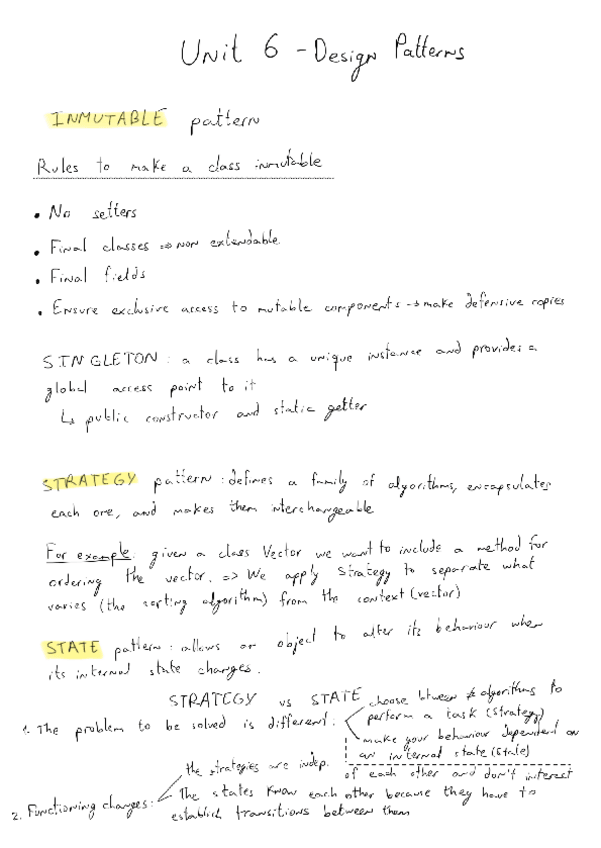 Unit 6 - Design Patterns
INMUTABLE pattern
Rules to make a class inmutable
• No setters
• Final classes => non extendable
• Final fields
• Ensure exclusive access to mutable components → make defensive copies
SINGLETON : a class has a unique instance and provides a
global access point to it
↳ public constructor and static getter
STRATEGY pattern : defines a family of algorithms, encapsulates
each one, and makes them interchangeable
For example: given a class Vector we want to include a method for
ordering the vector. => We apply Strategy to separate what
varies (the sorting algorithm) from the context (vector)
STATE pattern : allows an object to alter its behaviour when
its internal state changes.
STRATEGY vs STATE
1. The problem to be solved is different:
choose btween ≠ algorithms to
perform a task (Strategy)
make your behaviour dependent on
an internal state (State)
2. Functioning changes:
the strategies are indep. of each other and don't interest
The states know each other because they have to
establish transitions between them